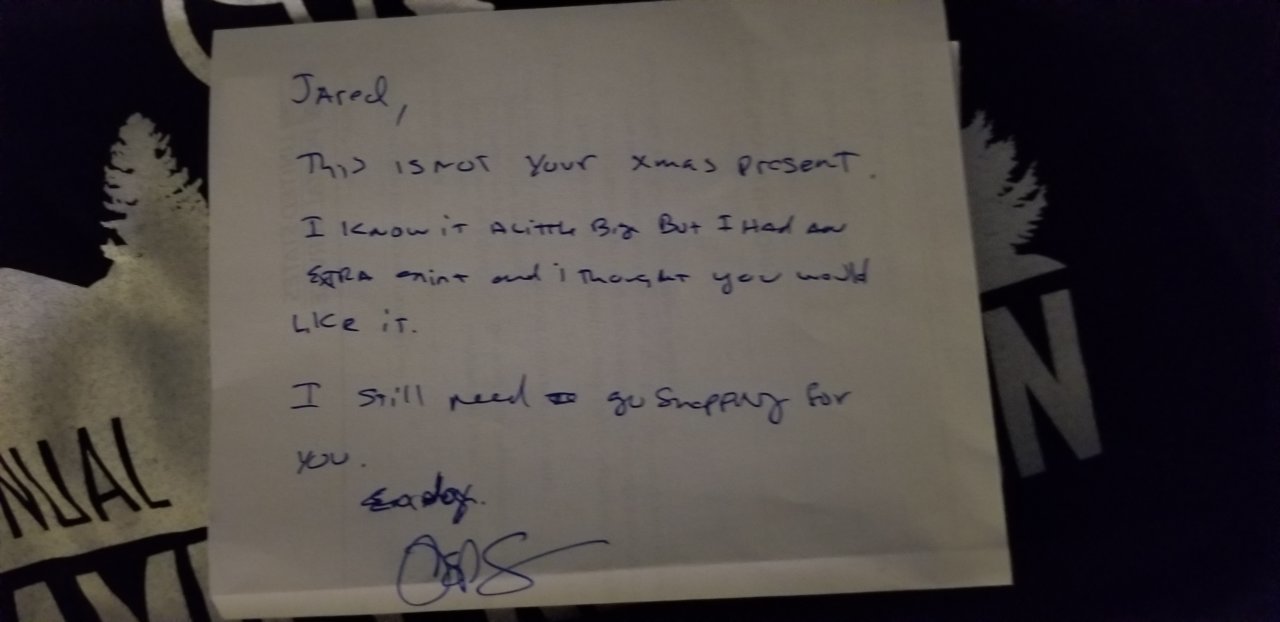 Jared,
This is not your xmas present.
I know it a little Big But I Had an
EXTRA and i thought you would
Like it.
I still need go shopping for
you.
NUAL
N